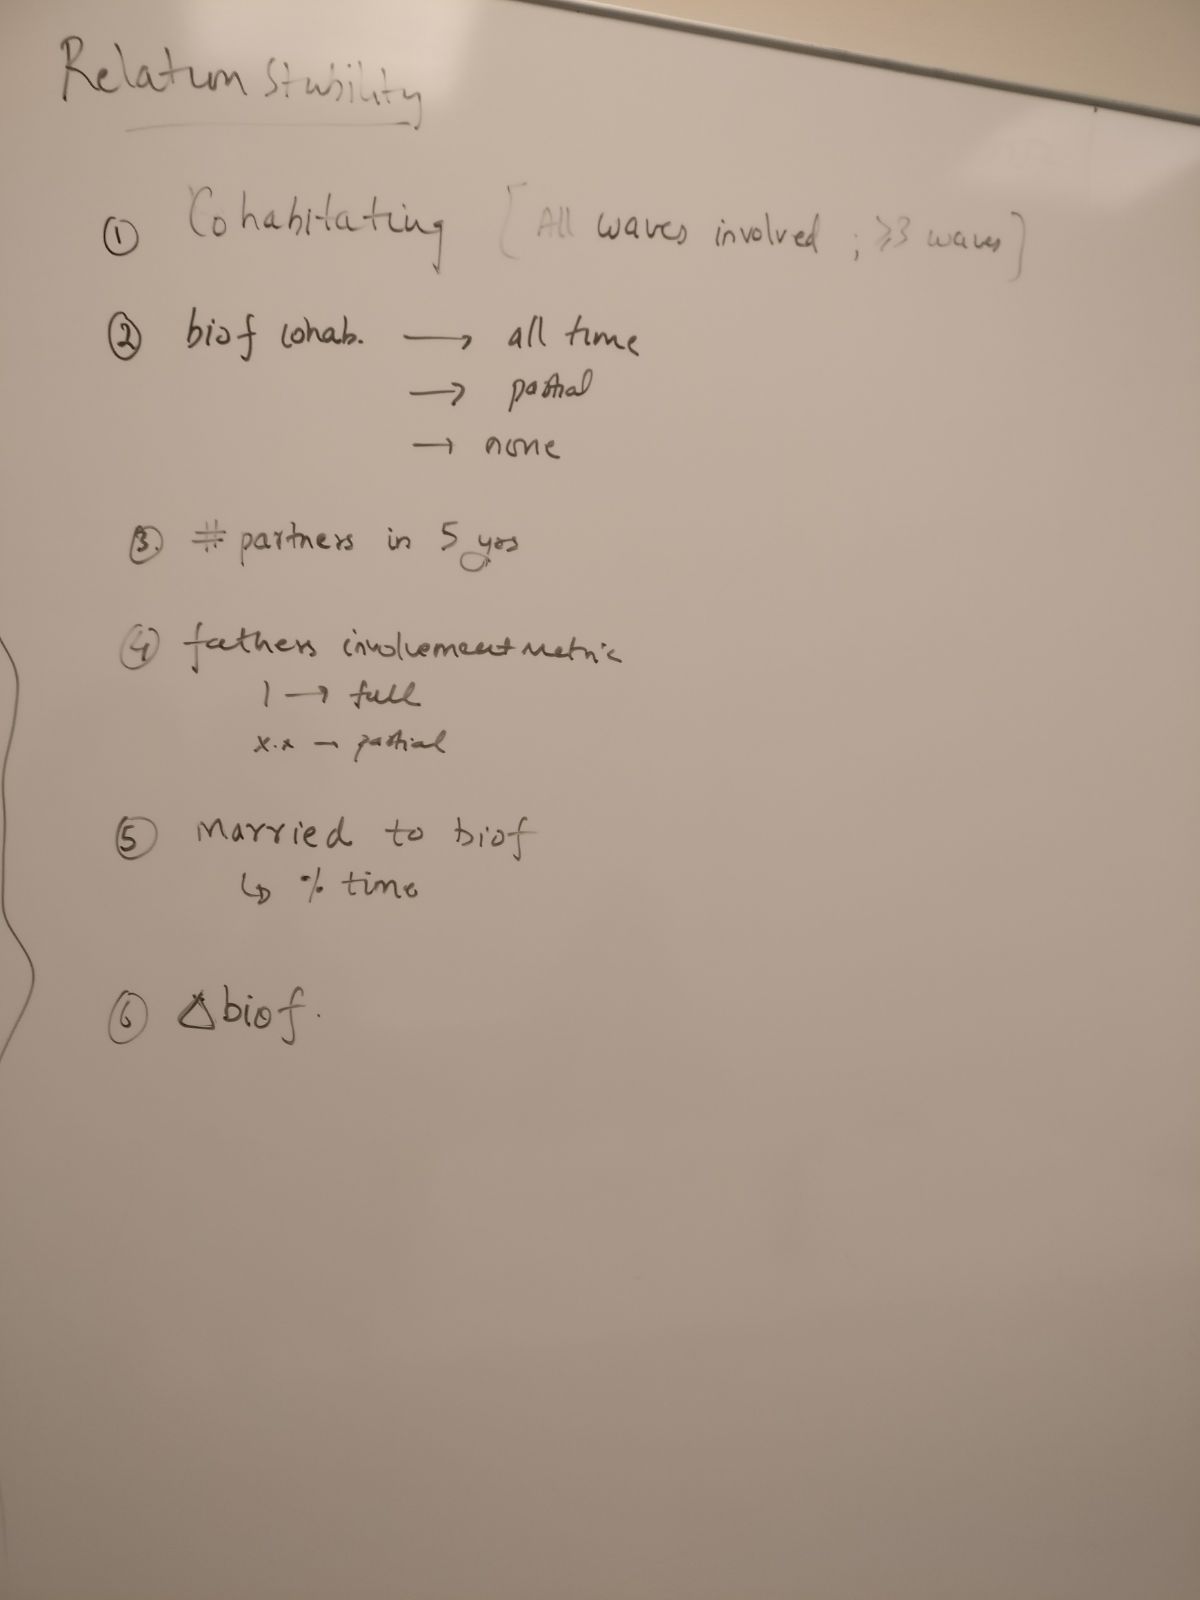 Relatum Stability
① Cohabitating [All waves involved ; ≥3 waves]
② biof cohab. → all time
→ partial
→ none
③. # partners in 5 yrs
④ fathers involvement metric
1 → full
x.x → partial
⑤ Married to biof
↳ % time
⑥ Δ biof.